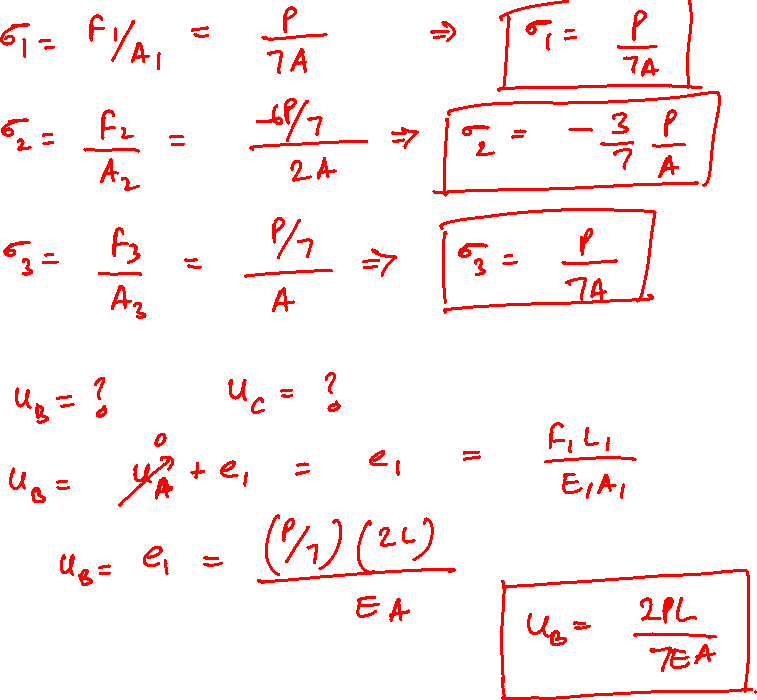 σ₁ = F₁/A₁ = P/7A ⇒ σ₁ = P/7A
σ₂ = F₂/A₂ = (-6P/7)/2A ⇒ σ₂ = - 3/7 P/A
σ₃ = F₃/A₃ = (P/7)/A ⇒ σ₃ = P/7A
u_B = ? u_C = ?
u_B = u_A⁰ + e₁ = e₁ = F₁L₁/E₁A₁
u_B = e₁ = (P/7)(2L)/EA
u_B = 2PL/7EA